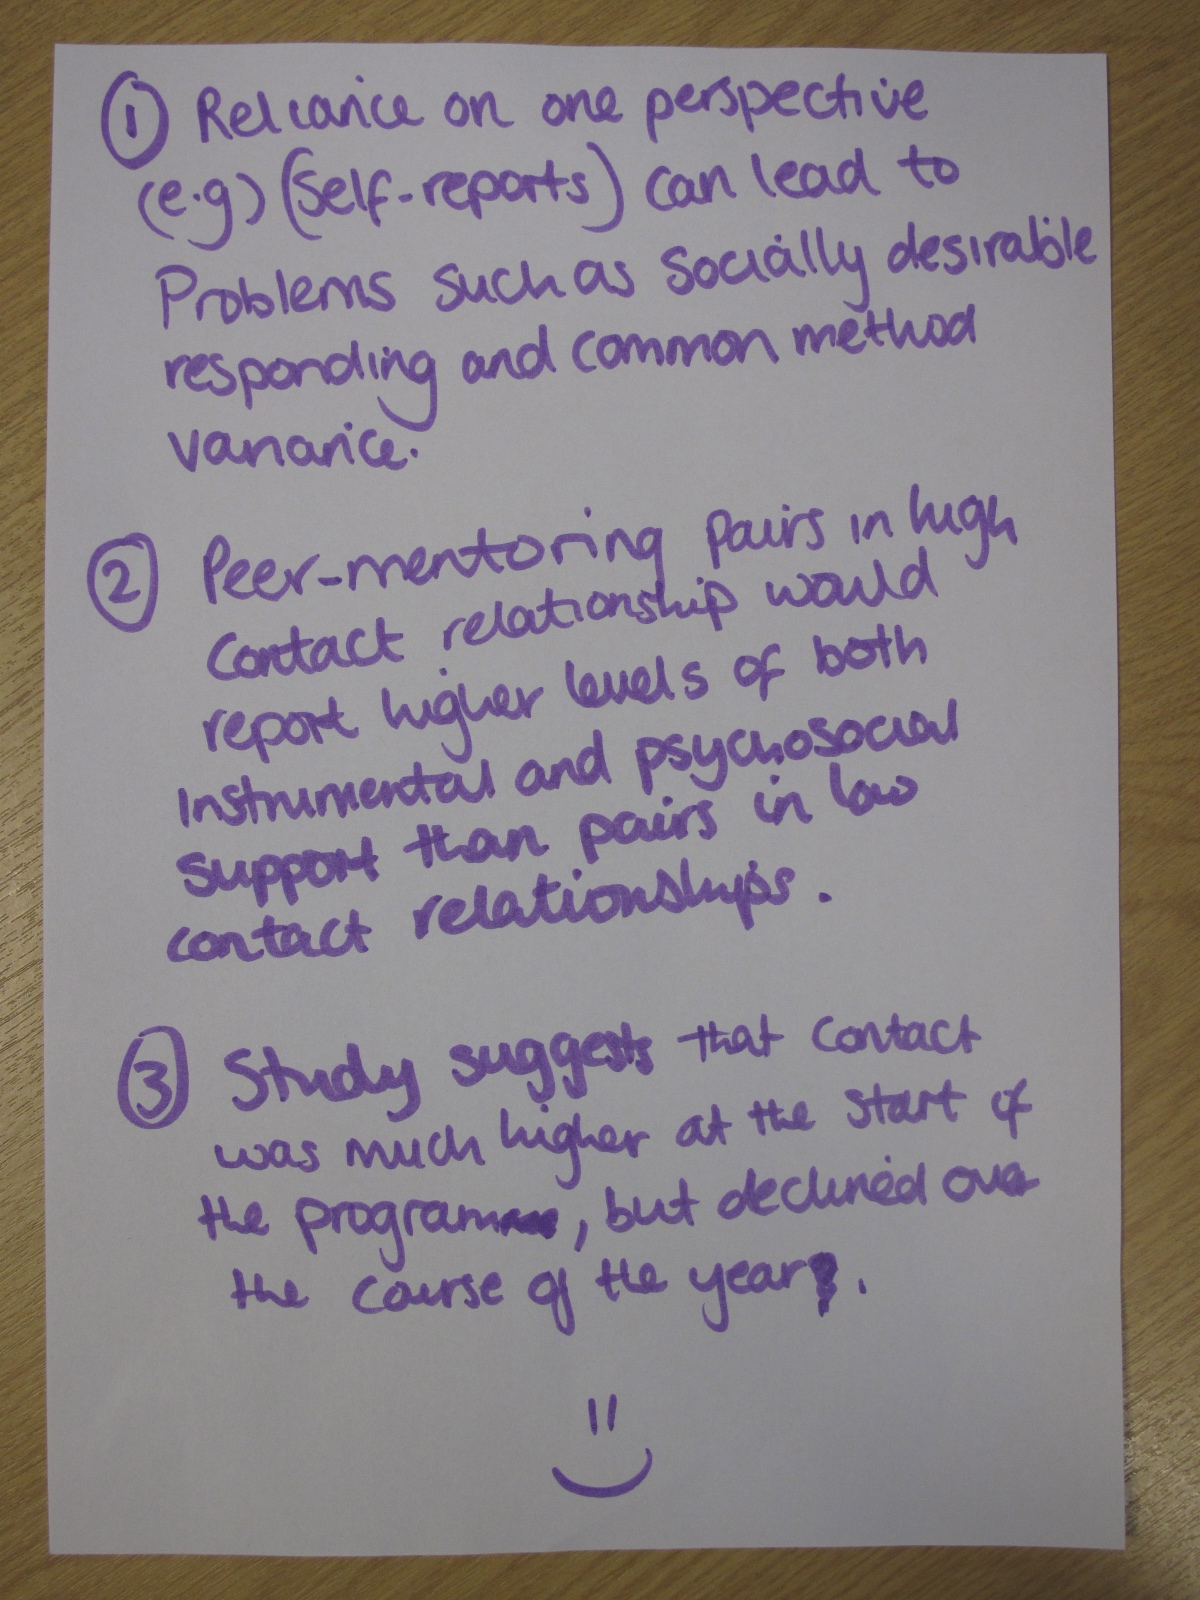 ① Reliance on one perspective
(e.g) (Self-reports) can lead to
Problems such as Socially desirable
responding and common method
variance.
② Peer-mentoring pairs in high
Contact relationship would
report higher levels of both
instrumental and psychosocial
support than pairs in low
contact relationships.
③ Study suggests that contact
was much higher at the start of
the program, but declined over
the course of the year.